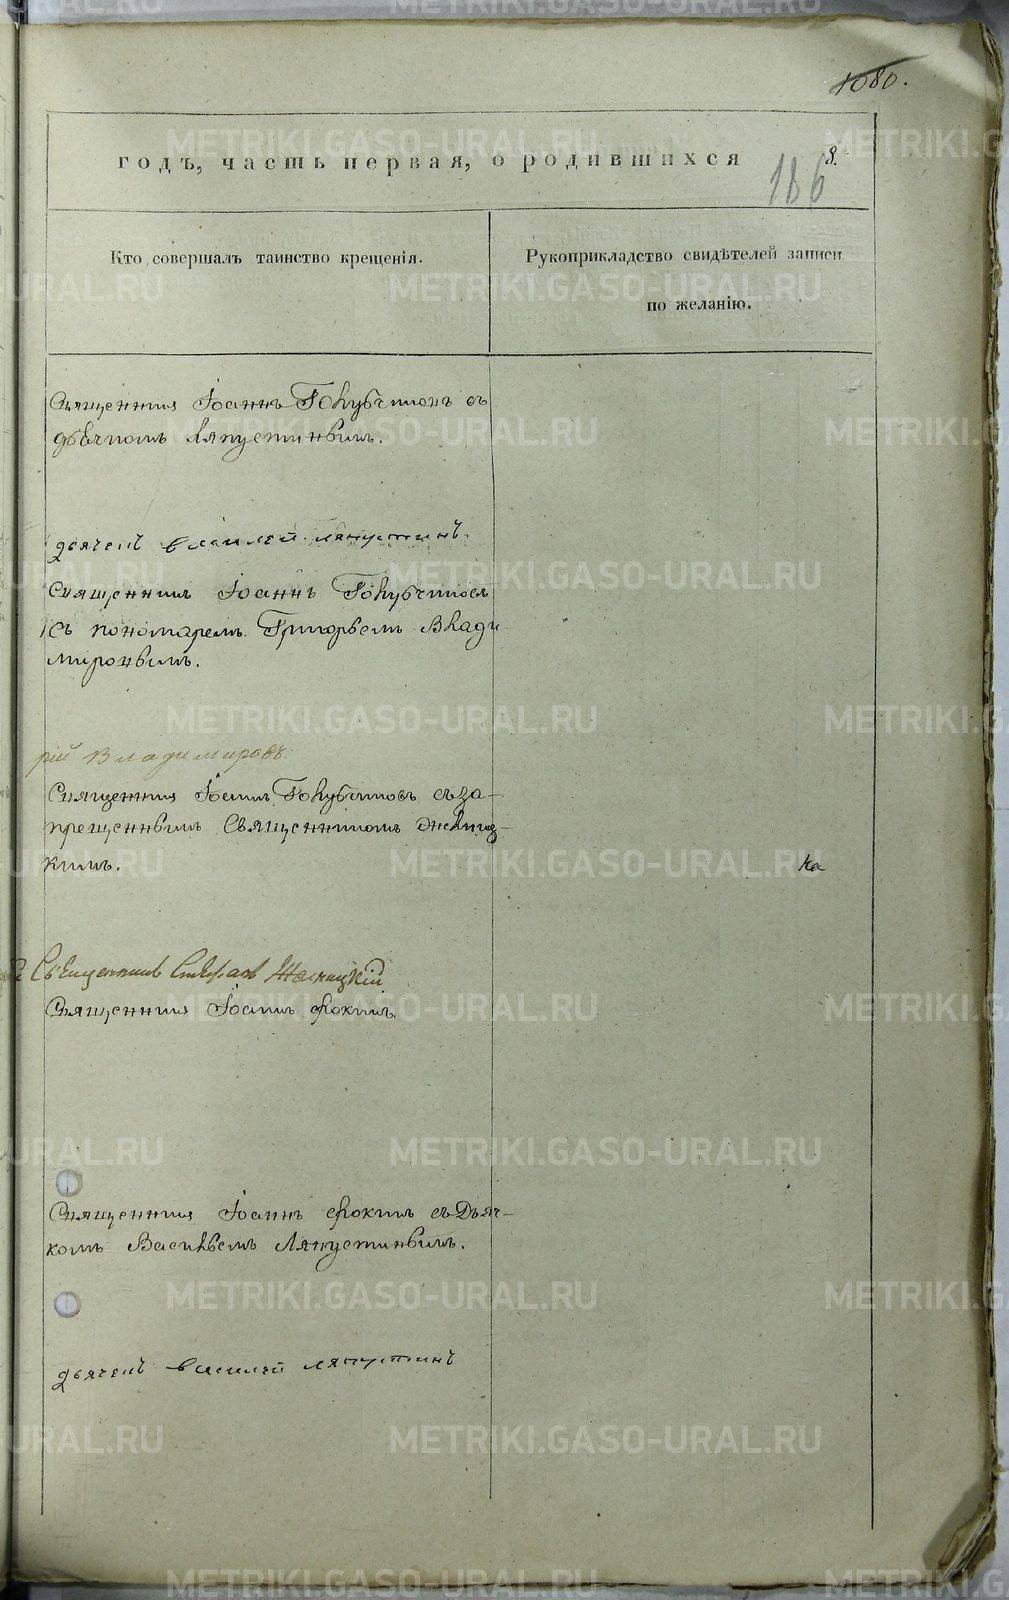 1080.
годъ, часть первая, о родившихся
8.
186
Кто совершалъ таинство крещенія.
Рукоприкладство свидѣтелей записи
по желанію.
Священникъ Іоаннъ Голубчиковъ съ
дьячкомъ Ляпустинымъ.
дьячекъ василей ляпустинъ.
Священникъ Іоаннъ Голубчиковъ
съ пономаремъ Григорьемъ Влади-
мировымъ.
рій Владимировъ.
Священникъ Іоаннъ Голубчиковъ съ за-
прещеннымъ Священникомъ
кимъ.
ка
Священникъ Стефанъ
Священникъ Іоаннъ Фокинъ.
Священникъ Іоаннъ Фокинъ съ Дьяч-
комъ Васильемъ Ляпустинымъ.
дьячекъ василей ляпустинъ
METRIKI.GASO-URAL.RU